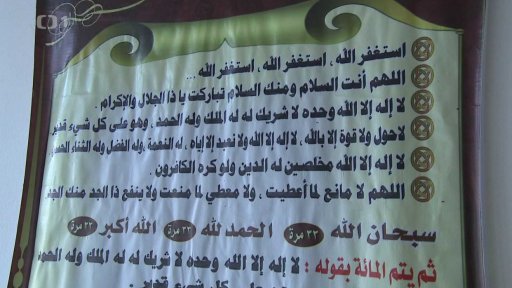 استغفر الله ، استغفر الله ، استغفر الله ...
اللهم أنت السلام ومنك السلام تباركت يا ذا الجلال والإكرام .
لا إله إلا الله وحده لا شريك له له الملك وله الحمد ، وهو على كل شيء قدير
لاحول ولا قوة إلا بالله ، لا إله إلا الله ولا نعبد إلا إياه ، له النعمة ،وله الفضل وله الثناء
لا إله إلا الله مخلصين له الدين ولو كره الكافرون .
اللهم لا مانع لما أعطيت ، ولا معطي لما منعت ولا ينفع ذا الجد منك الجد
سبحان الله ٣٣ مرة الحمد لله ٣٣ مرة الله أكبر ٣٣ مرة
ثم يتم المائة بقوله : لا إله إلا الله وحده لا شريك له له الملك وله الحمد